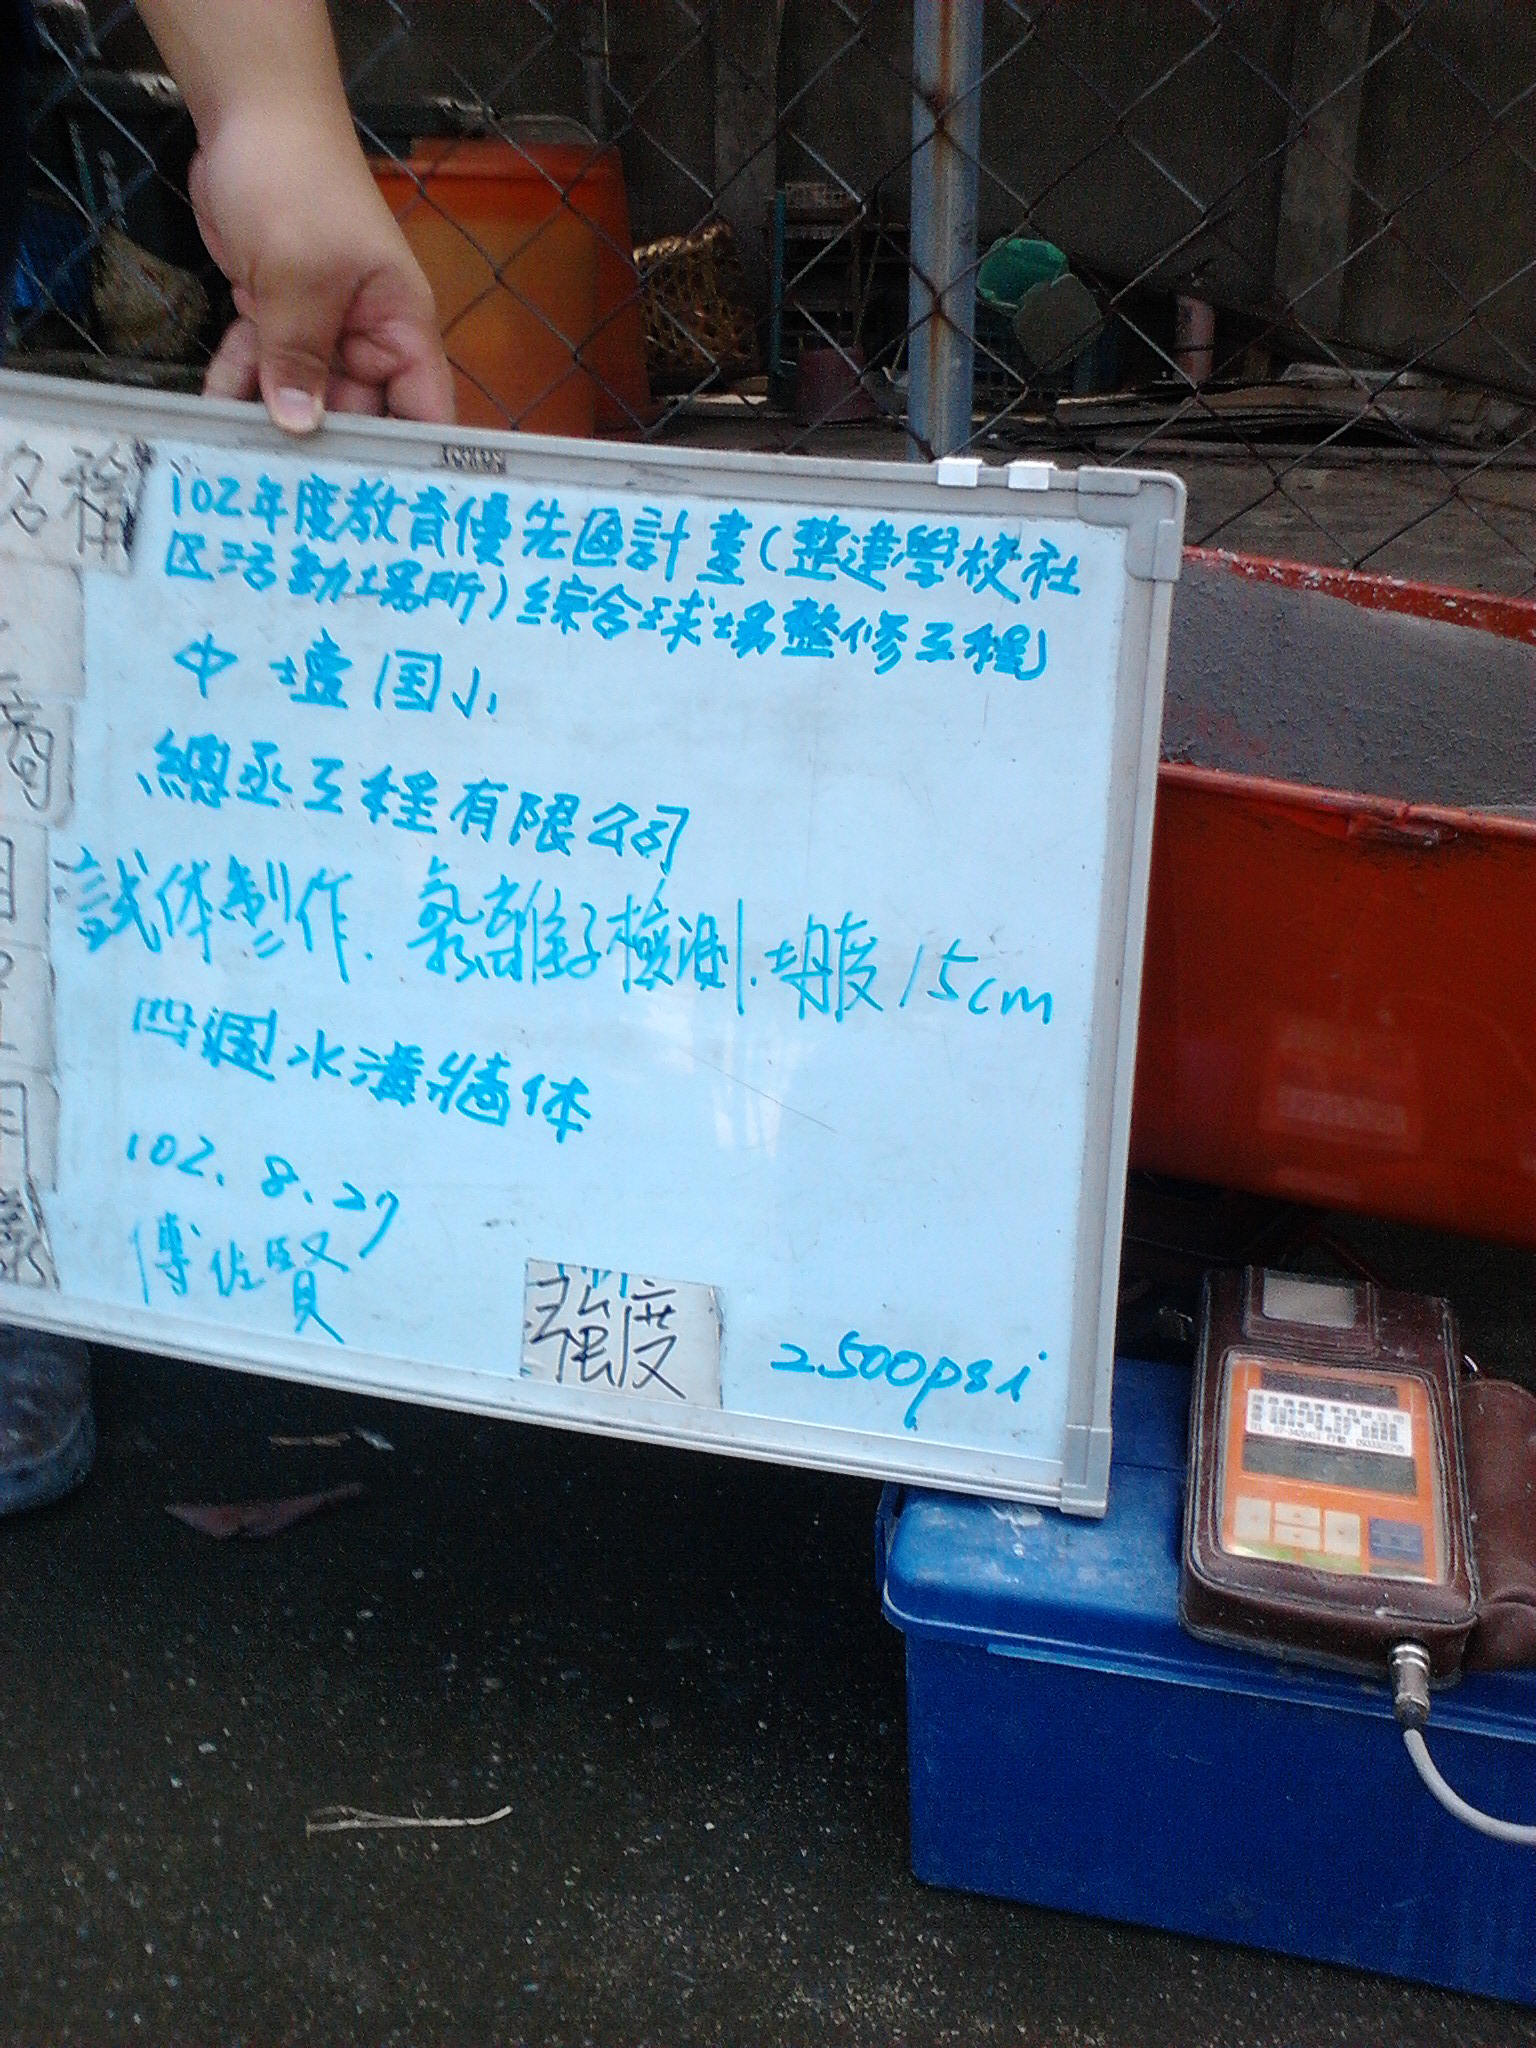 名稱
102年度教育優先區計畫(整建學校社
区活動場所)綜合球場整修工程
中壇国小
總丞工程有限公司
試体製作. 氯離子檢測. 坍度15cm
四週水溝牆体
102.8.27
傅佐賢
強度
2500psi